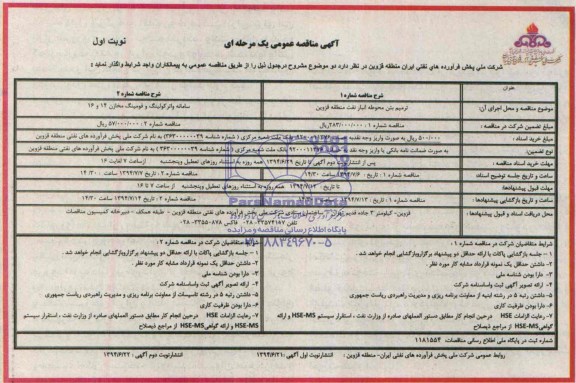 آگهی مناقصه عمومی یک مرحله ای
نوبت اول
شرکت ملی پخش فرآورده های نفتی ایران منطقه قزوین در نظر دارد دو موضوع مشروح درجدول ذیل را از طریق مناقصه عمومی به پیمانکاران واجد شرایط واگذار نماید :
عنوان
شرح مناقصه شماره ۱
شرح مناقصه شماره ۲
موضوع مناقصه و محل اجرای آن:
ترمیم بتن محوطه انبار نفت منطقه قزوین
سامانه واترکولینگ و فومینگ مخازن ۱۴ و ۱۶
مبلغ تضمین شرکت در مناقصه :
مناقصه شماره ۱ :
مناقصه شماره ۲ : ۵۷/۰۰۰/۰۰۰ ریال
مبلغ خرید اسناد :
۵۰۰/۰۰۰ ریال به صورت واریز وجه نقد
بانک ملت شعبه مرکزی ( شماره شناسه ۲۶۳۰۰۰۰۰۰۳۹) به نام شرکت ملی پخش فرآورده های نفتی منطقه قزوین
نوع تضمین:
به صورت ضمانت نامه بانکی یا واریز وجه نقد
بانک ملت شعبه مرکزی ( شماره شناسه ۲۶۳۰۰۰۰۰۰۳۹) به نام شرکت ملی پخش فرآورده های نفتی منطقه قزوین
مهلت خرید اسناد مناقصه :
پس از انتشارنوبت دوم آگهی تا تاریخ ۱۳۹۴/۶/۲۹ همه روزه به استثناء روزهای تعطیل وپنجشنبه ازساعت ۷ لغایت ۱۶
ساعت و تاریخ جلسه توضیح اسناد
مناقصه شماره ۱: تاریخ : ۱۳۹۴/۷/۶ ساعت ۱۴/۳۰
مناقصه شماره ۲: تاریخ ۱۳۹۴/۷/۷ ساعت : ۱۴/۳۰
مهلت قبول پیشنهادها:
تا تاریخ : ۱۳۹۴/۷/۱۲ همه روزه به استثناء روزهای تعطیل وپنجشنبه از ساعت ۷ تا ۱۶
ساعت و تاریخ بازگشایی پیشنهادها :
مناقصه شماره ۱: تاریخ : ۱۳۹۴/۷/۱۳
مناقصه شماره ۲: تاریخ ۱۳۹۴/۷/۱۴ ساعت ۱۴/۳۰
محل دریافت اسناد و قبول پیشنهادها :
قزوین- کیلومتر ۳ جاده قدیم تهران
ساختمان ستادی شرکت ملی پخش فرآورده های نفتی منطقه قزوین - طبقه همکف - دبیرخانه کمیسیون مناقصات
ParsNamadData
پایگاه اطلاع رسانی مناقصه و مزایده
۰۲۱-۸۸۳۴۹۶۷۰-۵
شرایط متقاضیان شرکت در مناقصه شماره ۱ :
۱ - جلسه بازگشایی پاکات با ارائه حداقل دو پیشنهاد برگزاروبازگشایی انجام خواهد شد.
۲- داشتن حداقل یک نمونه قرارداد مشابه کار مورد نظر .
۳- دارا بودن شناسه ملی
۴- ارائه تصویر آگهی ثبت واساسنامه شرکت
۵- داشتن رتبه ۵ در رشته ابنیه از معاونت برنامه ریزی و مدیریت راهبردی ریاست جمهوری
۶- دارا بودن ظرفیت کاری
۷- رعایت الزامات HSE درحین انجام کار مطابق دستور العملهای صادره از وزارت نفت ، استقرار سیستم HSE-MS و ارائه گواهی HSE-MS از مراجع ذیصلاح
شرایط متقاضیان شرکت در مناقصه شماره ۲:
۱ - جلسه بازگشایی پاکات با ارائه حداقل دو پیشنهاد برگزاروبازگشایی انجام خواهد شد.
۲- داشتن حداقل یک نمونه قرارداد مشابه کار مورد نظر.
۳- دارا بودن شناسه ملی
۴- ارائه تصویر آگهی ثبت واساسنامه شرکت
۵- داشتن رتبه ۵ در رشته تاسیسات از معاونت برنامه ریزی و مدیریت راهبردی ریاست جمهوری
۶- دارا بودن ظرفیت کاری
۷- رعایت الزامات HSE درحین انجام کار مطابق دستور العملهای صادره از وزارت نفت ، استقرار سیستم HSE-MS و ارائه گواهی HSE-MS از مراجع ذیصلاح
شماره ثبت در پایگاه ملی اطلاع رسانی مناقصات: ۱۱۸۱۵۵۴
روابط عمومی شرکت ملی پخش فرآورده های نفتی ایران- منطقه قزوین :
انتشارنوبت اول آگهی :۱۳۹۴/۶/۲۱
انتشارنوبت دوم آگهی : ۱۳۹۴/۶/۲۲